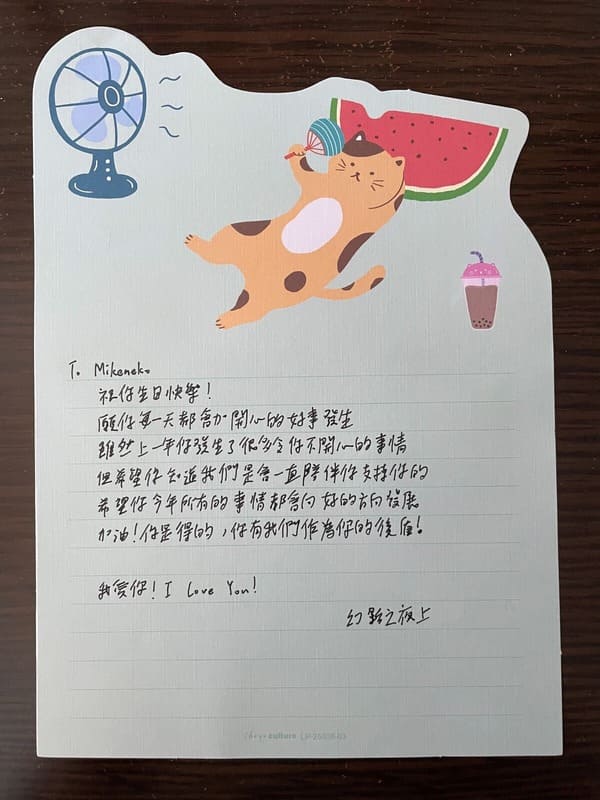 To Mikeneko
祝你生日快樂!
願你每一天都會加開心的好事發生
雖然上一年你發生了很多令你不開心的事情
但希望你知道我們是會一直陪伴你支持你的
希望你今年所有的事情都會向好的方向發展
加油!你是得的,你有我們作為你的後盾!
我愛你! I Love You!
幻黯之夜上
culture